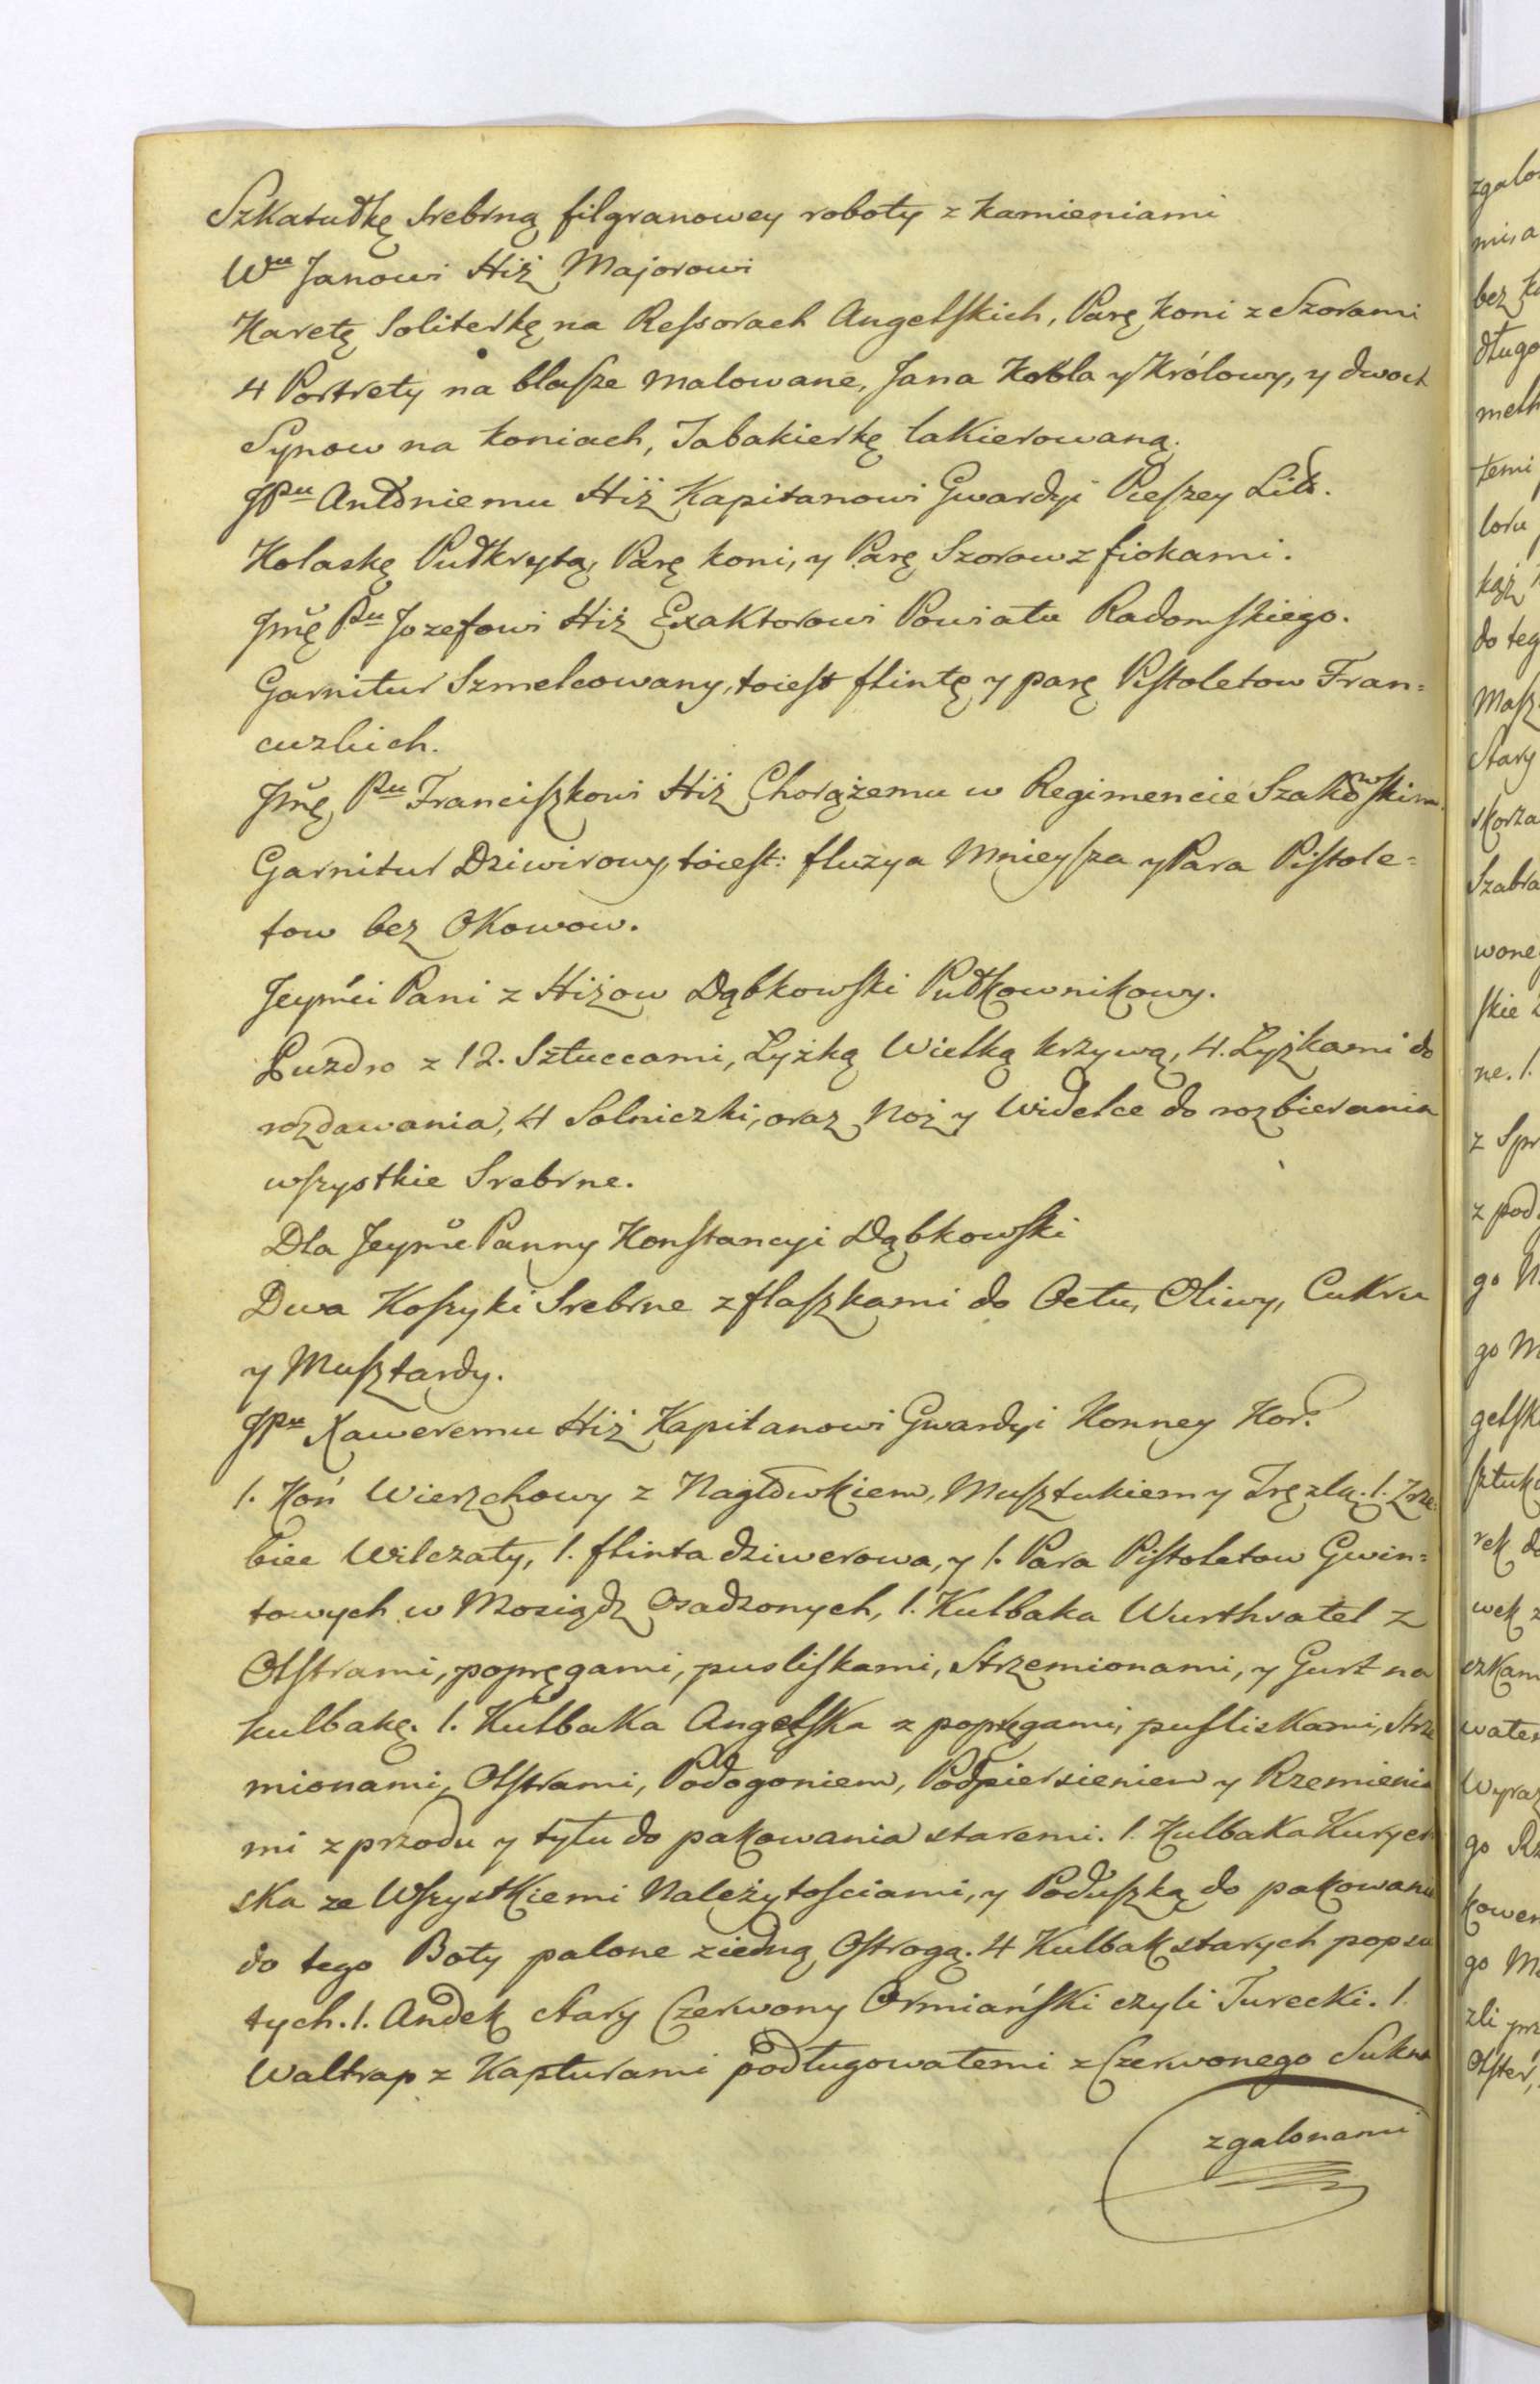 Szkatułkę Srebrną filgranowey roboty z kamieniami
Wu Janowi Hiż Majorowi
Karetę Soliterkę na Ressorach Angelskich, Parę koni z Szorami
4 Portrety na blasze malowane, Jana Kobla y Królowy, y dwoch
Synow na koniach, Tabakierkę lakierowaną.
JPu Antoniemu Hiż Kapitanowi Gwardyi Pieszey Litt.
Kolaskę Pułkrytą, Parę koni, y Parę Szorow z fiokami.
Jmę Pu Jozefowi Hiż Exaktorowi Powiatu Radomskiego.
Garnitur Szmelcowany, toiest flintę y parę Pistoletow Fran=
cuzkich.
Jmę Pu Franciszkowi Hiż Chorążemu w Regimencie Szakowskim.
Garnitur Dziwirowy, toiest: fluzya Mnieysza y Para Pistole=
tow bez Okowow.
Jeymci Pani z Hiżow Dąbkowski Pułkownikowy.
Puzdro z 12. Sztuccami, Łyżką Wielką krzywą, 4. Łyżkami do
rozdawania, 4 Solniczki, oraz Noż y Widelce do rozbierania
wszystkie Srebrne.
Dla Jeymc Panny Konstancyi Dąbkowski
Dwa Koszyki Srebrne z flaszkami do Octu, Oliwy, Cukru
y Musztardy.
JPu Xaweremu Hiż Kapitanowi Gwardyi Konney Kor.
1. Koń Wierzchowy z Nagłowkiem, Musztukiem y Tręzlą. 1. Zrze=
biec Wilczaty, 1. flinta dziwerowa, y 1. Para Pistoletow Gwin=
towych w Mosiądz Osadzonych, 1. Kulbaka Wurthsatel z
Olstrami, popręgami, pusliskami, Strzemionami, y Gurt na
kulbakę. 1. Kulbaka Angelska z popręgami, pusliskami, Strze
mionami, Olstrami, Podogoniem, Podpiersieniem y Rzemienia
mi z przodu y tyłu do pakowania staremi. 1. Kulbaka Kuryer
ska ze Wszystkiemi Należytosciami, y Poduszką do pakowania
do tego Boty palone ziedną Ostrogą. 4 Kulbak starych popsu
tych. 1. Andek stary Czerwony Ormiański czyli Turecki. 1.
Waltrap z Kapturami podługowatemi z Czerwonego Sukna
zgalonami